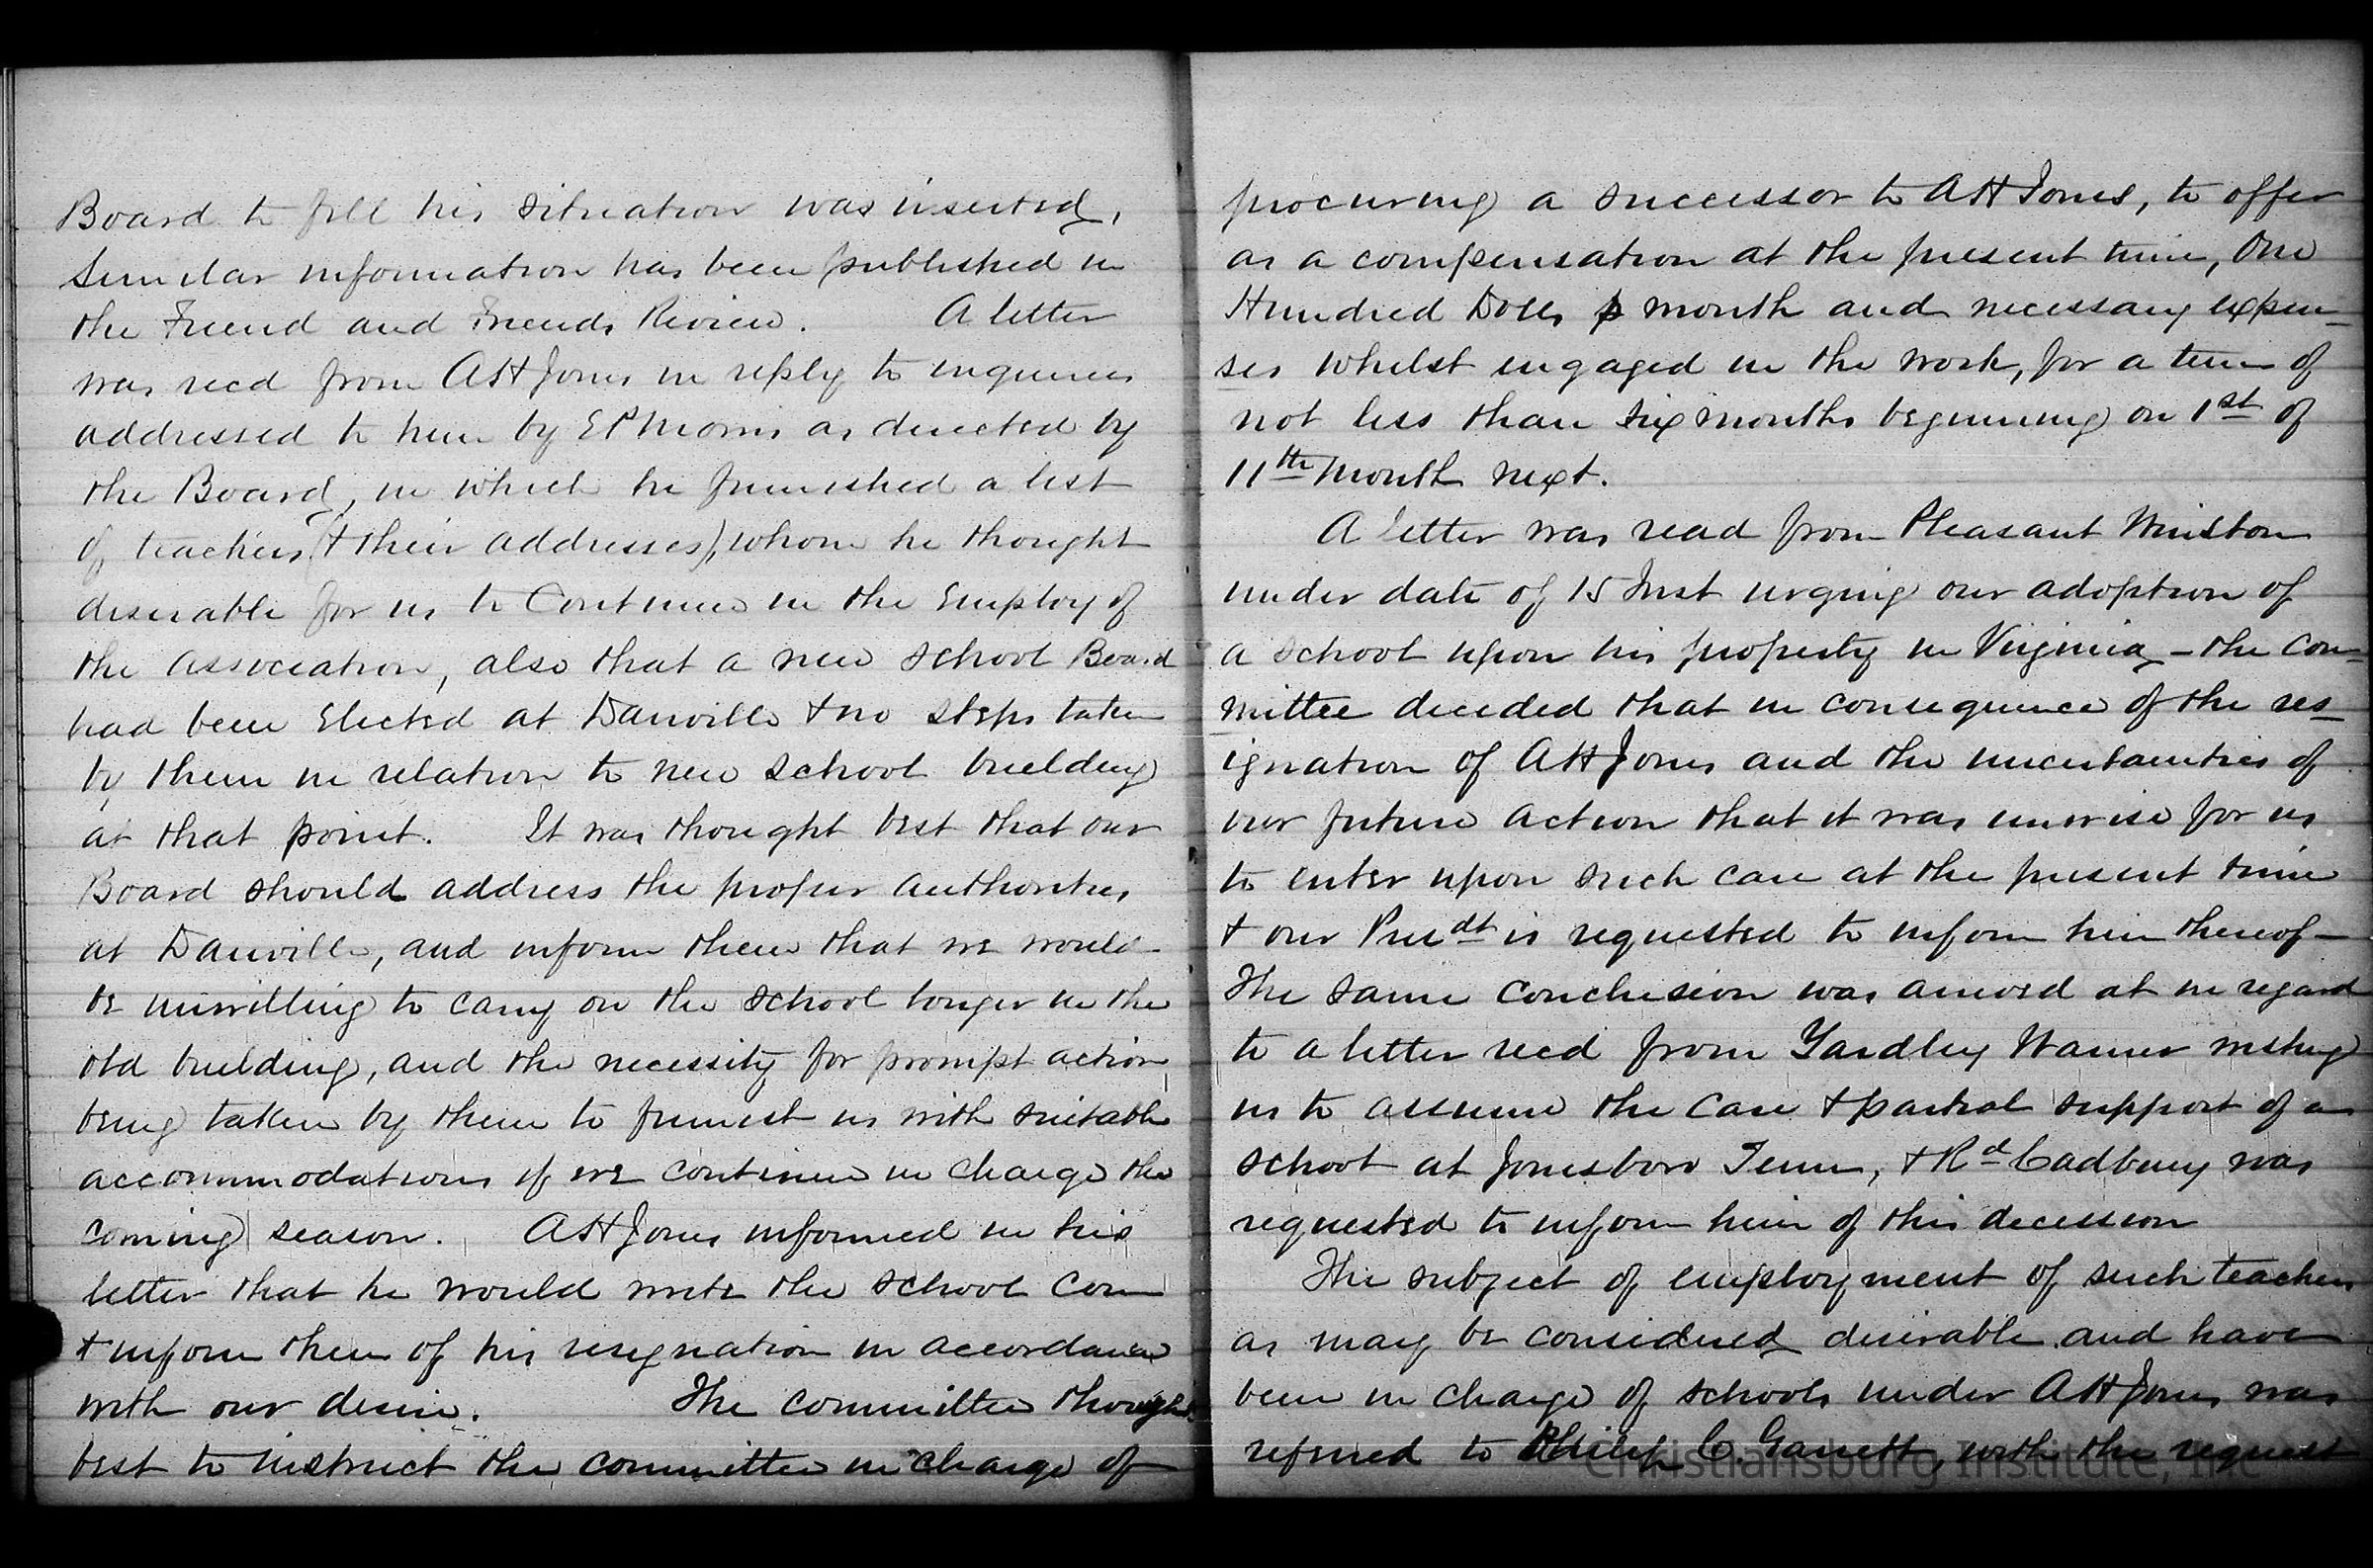 Board to fill his situation was inserted,
Similar information has been published in
the Friend and Friends Review. A letter
was recd from AH Jones in reply to inquiries
addressed to him by EP Morris as directed by
the Board, in which he furnished a list
of teachers (& their addresses), whom he thought
desirable for us to Continue in the Employ of
the Association, also that a new School Board
had been Elected at Danville & no steps taken
by them in relation to new School building
at that point. It was thought best that our
Board should address the proper Authorities,
at Danville, and inform them that we would
be unwilling to carry on the School longer in the
old building, and the necessity for prompt action
being taken by them to furnish us with suitable
accommodations if we continue in charge the
coming season. AH Jones informed in his
letter that he would write the School Com
& inform them of his resignation in accordance
with our desire. The committee thought
best to instruct the committee in charge of
procuring a successor to AH Jones, to offer
as a compensation at the present time, One
Hundred Dolls p month and necessary expen-
ses whilst engaged in the work, for a term of
not less than six months beginning on 1st of
11th month next.
A letter was read from Pleasant Winston
under date of 15 Inst urging our adoption of
a School upon his property in Virginia - the com-
mittee decided that in consequence of the res-
ignation of AH Jones and the uncertainties of
our future action that it was unwise for us
to enter upon such care at the present time
& our Presdt is requested to inform him thereof -
The same conclusion was arrived at in regard
to a letter recd from Yardley Warner
us to assume the Care & partial support of a
School at Jonesboro Tenn, & Rd Cadbury was
requested to inform him of this decession
The subject of employment of such teachers
as may be considered desirable and have
been in charge of schools under AH Jones was
referred to Philip C. Garrett, with the request
Christiansburg Institute, Inc